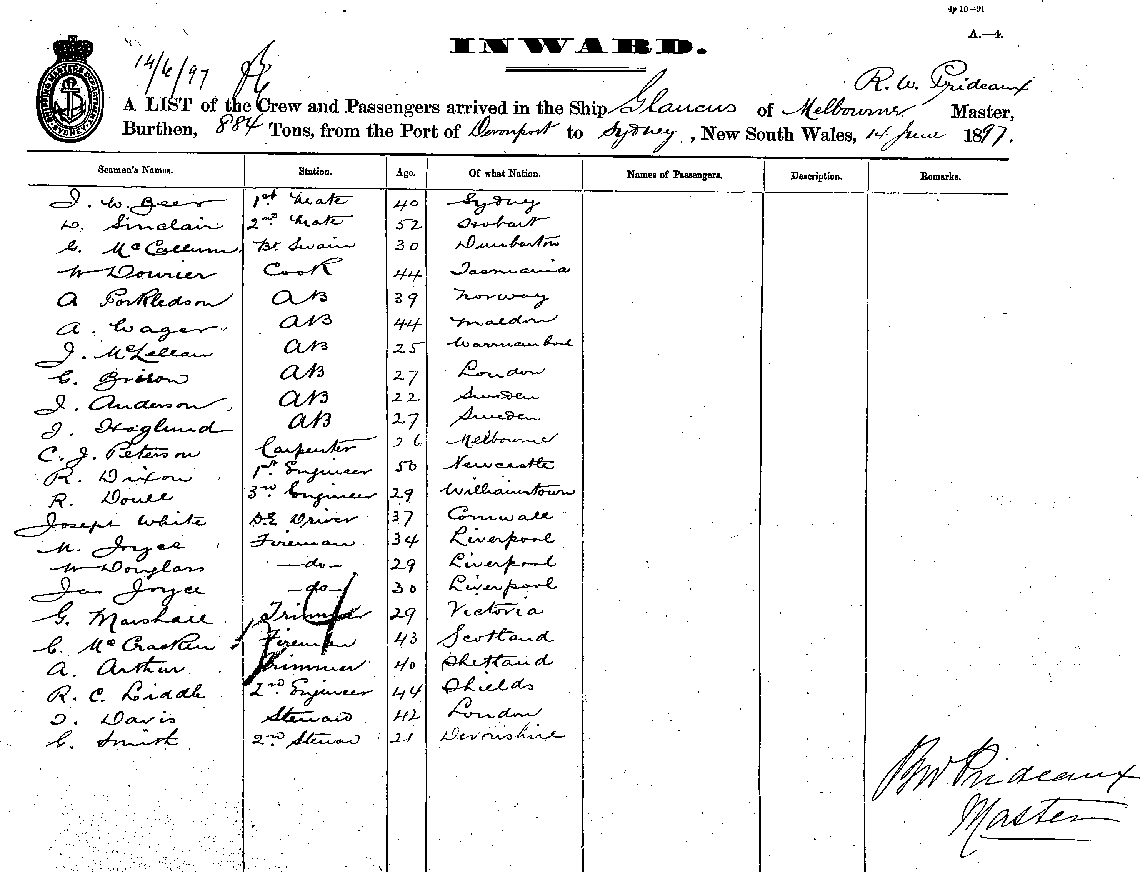 4p 10—91
A.—4.
INWARD.
14/6/97
R. W. Prideaux
A LIST of the Crew and Passengers arrived in the Ship Glaucus of Melbourne Master,
Burthen, 884 Tons, from the Port of Devonport to Sydney, New South Wales, 14 June 1897.
Seamen's Names. Station. Age. Of what Nation. Names of Passengers. Description. Remarks.
J. W. Beer 1st Mate 40 Sydney
D. Sinclair 2nd Mate 52 Hobart
G. McCallum Bt Swain 30 Dumbarton
W Dourier Cook 44 Tasmania
A Torkledson AB 39 Norway
A. Wager AB 44 Maldon
J. McLellan AB 25
C. Brison AB 27 London
J. Anderson AB 22 Sweden
J. Hoglund AB 27 Sweden
C. J. Peterson Carpenter 26 Melbourne
R. Dixon 1st Engineer 50 Newcastle
R. Doull 3rd Engineer 29 Williamstown
Joseph White D.E Driver 37 Cornwall
M. Joyce Fireman 34 Liverpool
W Douglass —do— 29 Liverpool
Jas Joyce —do— 30 Liverpool
G. Marshall Trimmer 29 Victoria
C. McCracken Fireman 43 Scotland
A. Arthur Trimmer 40 Shetland
R. C. Liddle 2nd Engineer 44 Shields
D. Davis Steward 42 London
C. Smith 2nd Steward 21 Devonshire
RW Prideaux
Master